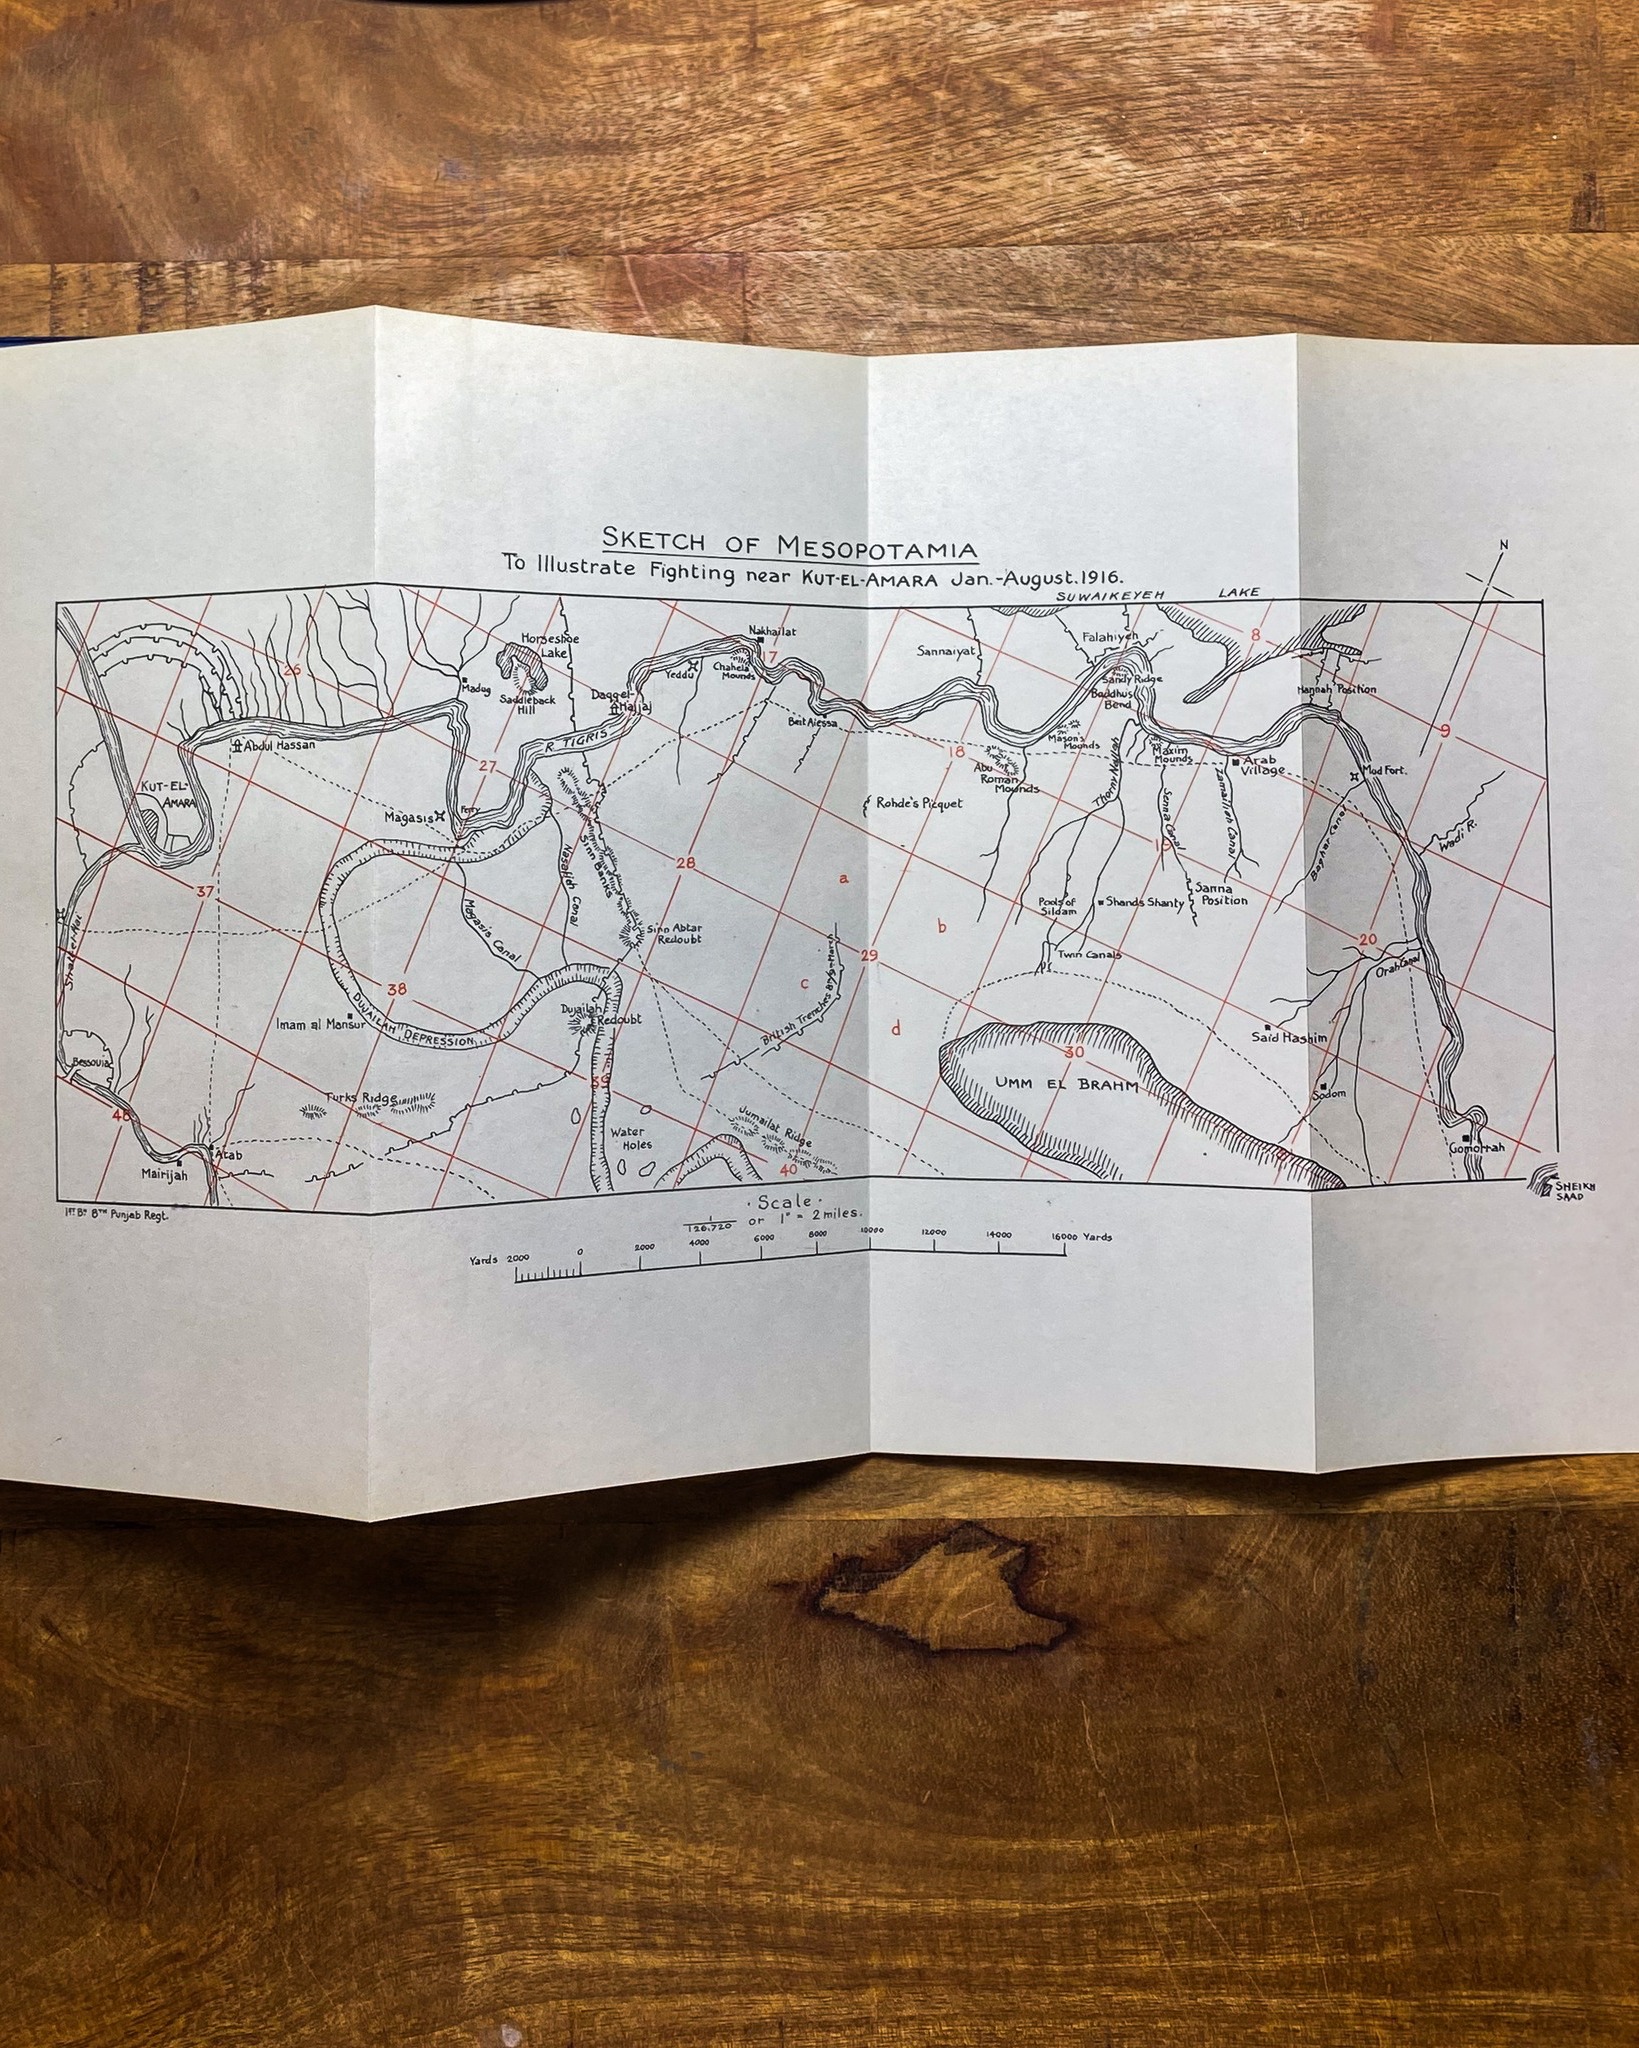 SKETCH OF MESOPOTAMIA
To Illustrate Fighting near KUT-EL-AMARA Jan.-August.1916.
SUWAIKEYEH LAKE
N
8
Horseshoe
Lake
Nakhailat
Falahiyeh
Sannaiyat
26
17
Yeddu
Chahela
Mounds
Sandy Ridge
Madug
Saddleback
Hill
Daqq-el-
Hajjaj
Buddhus
Bend
Hannah Position
Beit Aiessa
9
Abdul Hassan
R. TIGRIS
18
Mason's
Mounds
Maxim
Mounds
Arab
Village
27
Abu
Roman
Mounds
Mud Fort.
KUT-EL-
AMARA
Rohde's Picquet
Magasis
Ferry
Senna Canal
Wadi R.
Sinn Banks
19
28
Nasafieh Canal
a
37
Sanna
Position
Pools of
Sildam
Shands Shanty
Magasis Canal
Sinn Abtar
Redoubt
b
20
Twin Canals
29
Orah Canal
Shatt-el-Hai
c
38
British Trenches 8th/9th March
Dujailah
Redoubt
Imam al Mansur
DUJAILAH DEPRESSION
d
Said Hashim
30
Bessouia
39
UMM EL BRAHM
Sodom
Turks Ridge
46
Jumailat Ridge
Water
Holes
Gomorrah
Atab
Mairijah
40
SHEIKH
SAAD
1ST Bn 8TH Punjab Regt.
Scale
1/126,720 or 1" = 2 miles.
Yards 2000 0 2000 4000 6000 8000 10000 12000 14000 16000 Yards